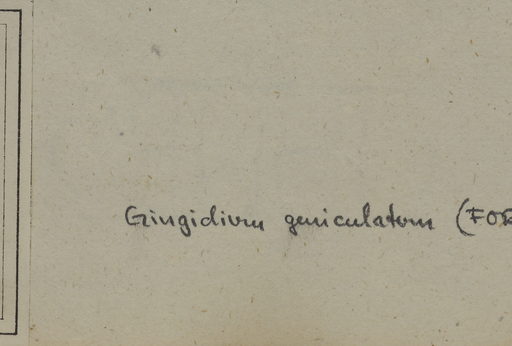 Gingidium geniculatum (FOR